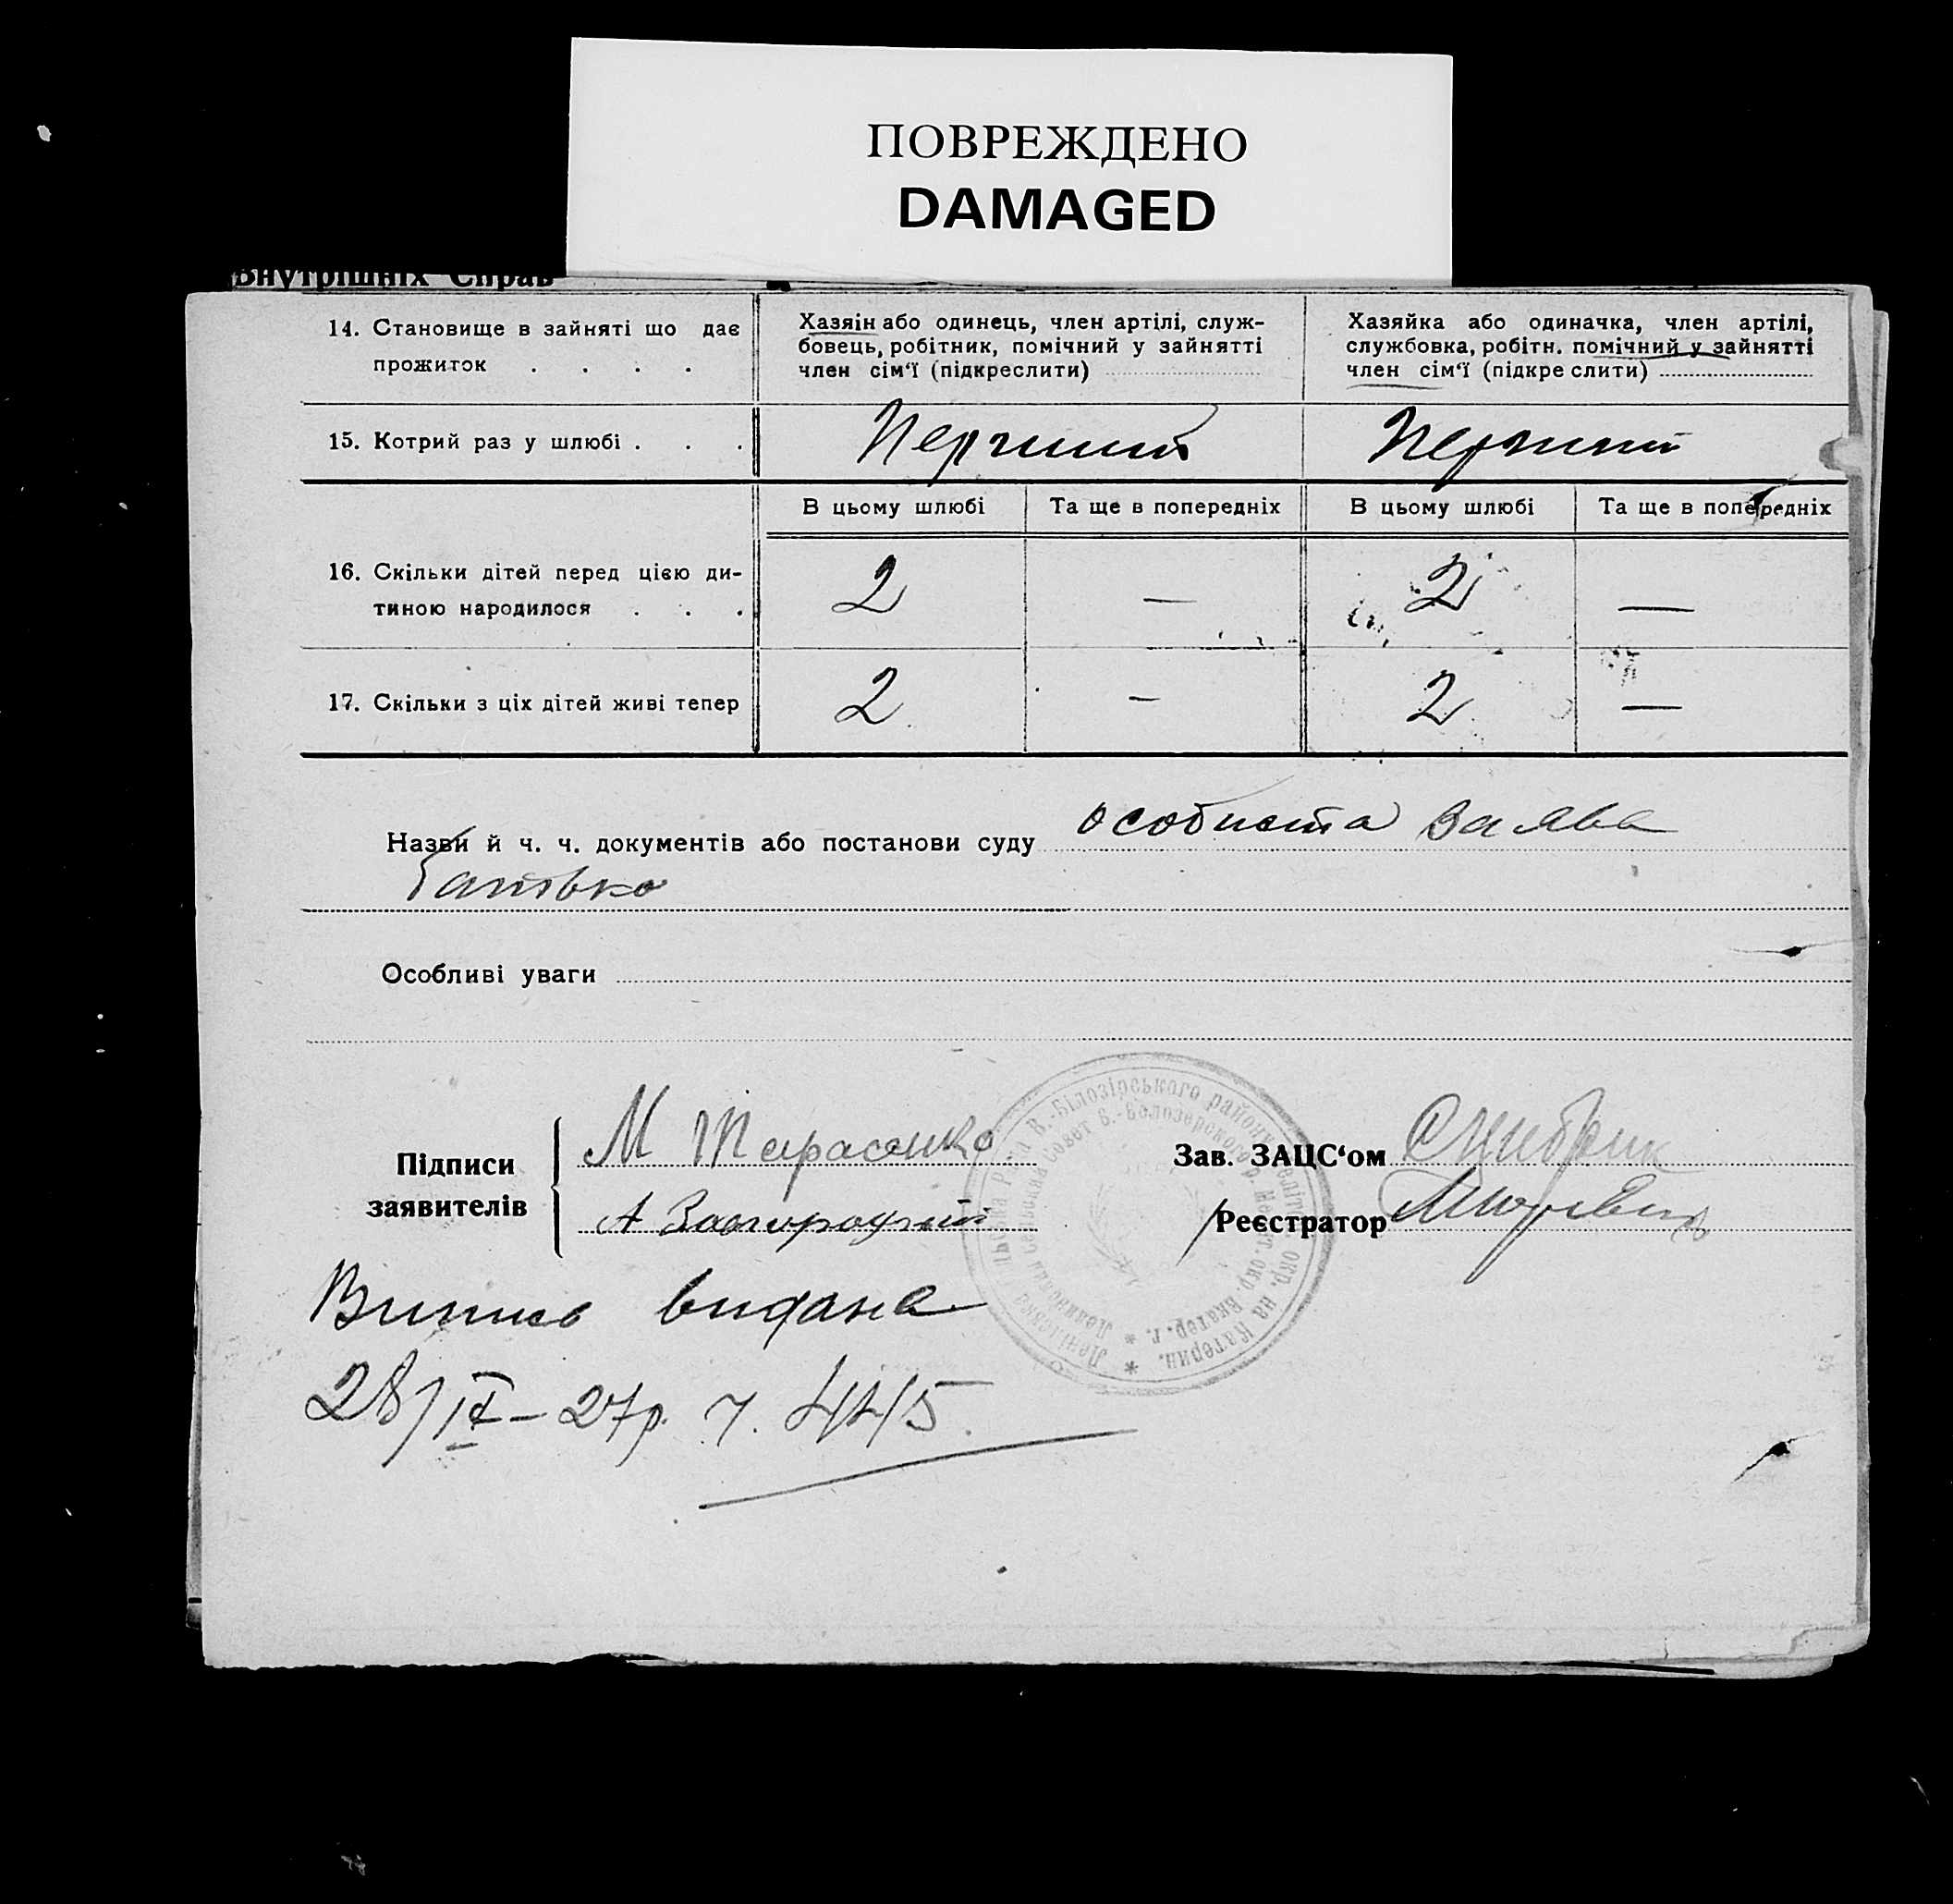 ПОВРЕЖДЕНО
DAMAGED
Внутрішніх Справ
14. Становище в зайняті що дає
прожиток . . . .
Хазяін або одинець, член артілі, служ-
бовець, робітник, помічний у зайнятті
член сім‘ї (підкреслити)
Хазяйка або одиначка, член артілі,
службовка, робітн. помічний у зайнятті
член сім‘ї (підкре слити)
15. Котрий раз у шлюбі . . .
Перший
Перший
В цьому шлюбі
Та ще в попередніх
В цьому шлюбі
Та ще в попередніх
16. Скільки дітей перед цією ди-
тиною народилося . . .
2 — 2 —
17. Скільки з ціх дітей живі тепер
2 — 2 —
Назви й ч. ч. документів або постанови суду особиста заява
батько
Особливі уваги
Підписи
заявителів
М Тарасенко
А Загородний
Зав. ЗАЦС‘ом
Реєстратор
В.-Білозірського району Меліт. окр. на Катерин.
совет В.-Белозерского р. Мелит. окр. Екатер. г.
Випись видана
28/IX – 27р. ч. 445.